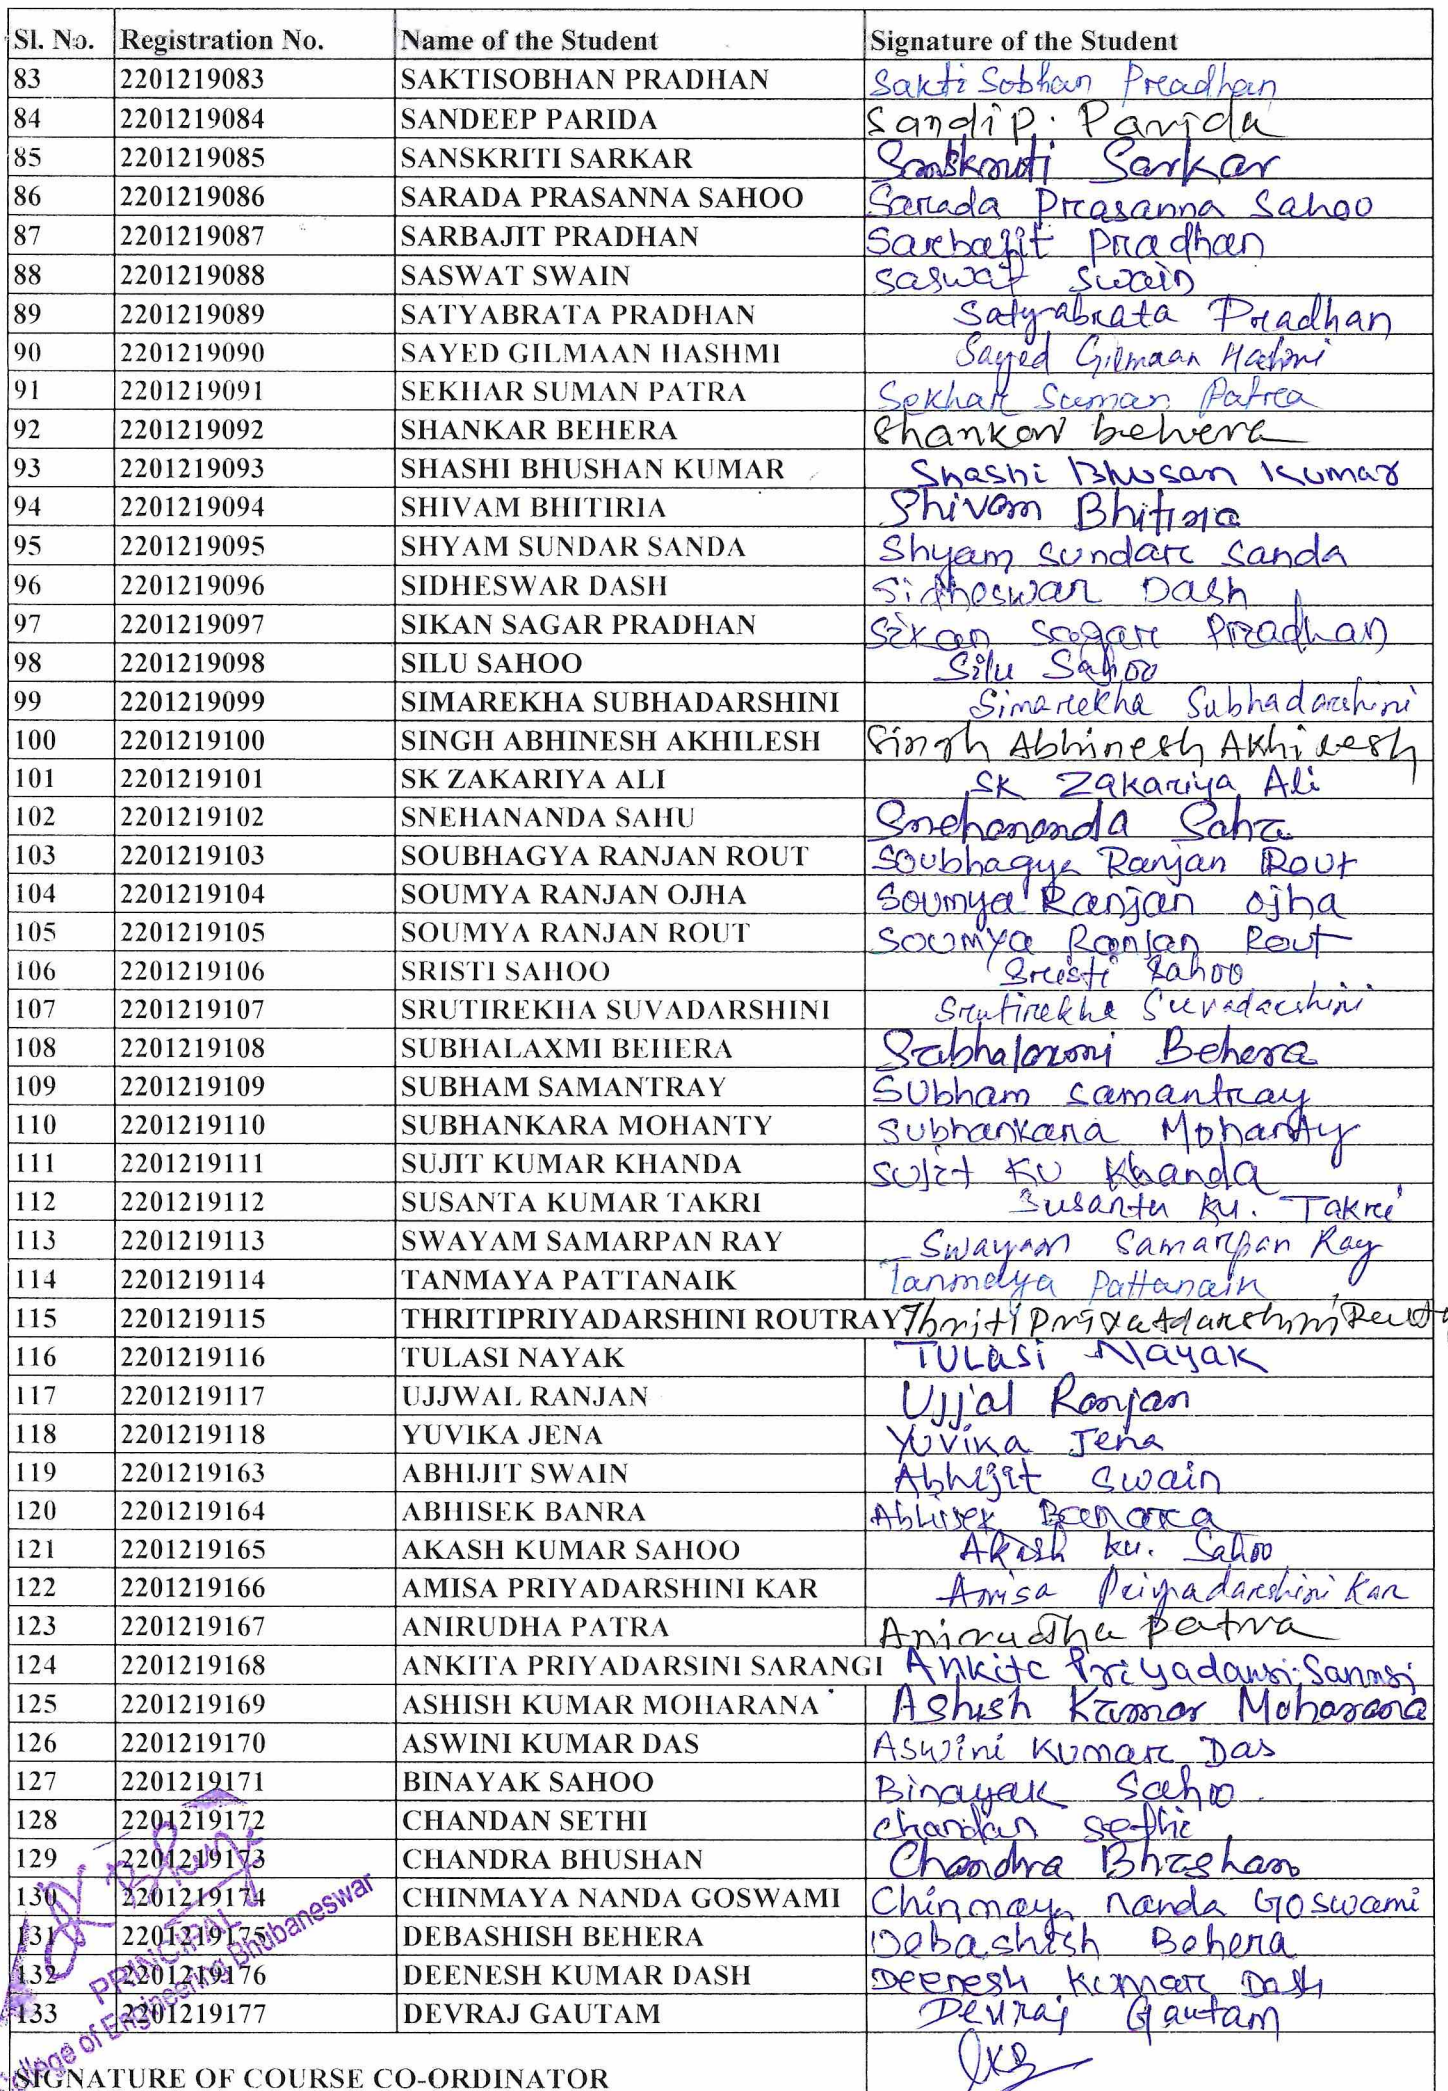 Sl. No. Registration No. Name of the Student Signature of the Student
83 2201219083 SAKTISOBHAN PRADHAN Sakti Sobhan Preadhan
84 2201219084 SANDEEP PARIDA Sandip. Parida
85 2201219085 SANSKRITI SARKAR Sarkar
86 2201219086 SARADA PRASANNA SAHOO Sarada Prcasanna Sahoo
87 2201219087 SARBAJIT PRADHAN Sarcbajit pradhan
88 2201219088 SASWAT SWAIN Saswat swain
89 2201219089 SATYABRATA PRADHAN Satyabrata Pradhan
90 2201219090 SAYED GILMAAN HASHMI Sayed Gilmaan
91 2201219091 SEKHAR SUMAN PATRA Sekhar Suman Patra
92 2201219092 SHANKAR BEHERA Shankar behera
93 2201219093 SHASHI BHUSHAN KUMAR Shashi Bhusan Kumar
94 2201219094 SHIVAM BHITIRIA Shivam Bhitiria
95 2201219095 SHYAM SUNDAR SANDA Shyam sundarc sanda
96 2201219096 SIDHESWAR DASH Sidheswar Dash
97 2201219097 SIKAN SAGAR PRADHAN Sikan sagarc Pradhan
98 2201219098 SILU SAHOO Silu Sahoo
99 2201219099 SIMAREKHA SUBHADARSHINI Simarekha Subhadarshini
100 2201219100 SINGH ABHINESH AKHILESH Singh Abhinesh Akhilesh
101 2201219101 SK ZAKARIYA ALI SK Zakariya Ali
102 2201219102 SNEHANANDA SAHU Snehananda Sahu
103 2201219103 SOUBHAGYA RANJAN ROUT Soubhagya Ranjan Rout
104 2201219104 SOUMYA RANJAN OJHA Soumya Ranjan ojha
105 2201219105 SOUMYA RANJAN ROUT Soumya Ranjan Rout
106 2201219106 SRISTI SAHOO Sristi Sahoo
107 2201219107 SRUTIREKHA SUVADARSHINI Srutirekha Suvadarshini
108 2201219108 SUBHALAXMI BEHERA Subhalaxmi Behera
109 2201219109 SUBHAM SAMANTRAY Subham samantray
110 2201219110 SUBHANKARA MOHANTY Subhankara Mohanty
111 2201219111 SUJIT KUMAR KHANDA Sujit KU Khanda
112 2201219112 SUSANTA KUMAR TAKRI Susanta Ku. Takri
113 2201219113 SWAYAM SAMARPAN RAY Swayam Samarpan Ray
114 2201219114 TANMAYA PATTANAIK Tanmaya Pattanaik
115 2201219115 THRITIPRIYADARSHINI ROUTRAY
116 2201219116 TULASI NAYAK TULasi Nayak
117 2201219117 UJJWAL RANJAN Ujjal Ranjan
118 2201219118 YUVIKA JENA Yuvika Jena
119 2201219163 ABHIJIT SWAIN Abhijit swain
120 2201219164 ABHISEK BANRA Abhisek
121 2201219165 AKASH KUMAR SAHOO Akash ku. Sahoo
122 2201219166 AMISA PRIYADARSHINI KAR Amisa Priyadarshini Kar
123 2201219167 ANIRUDHA PATRA Anirudha patra
124 2201219168 ANKITA PRIYADARSINI SARANGI
125 2201219169 ASHISH KUMAR MOHARANA Ashish Kumar Moharana
126 2201219170 ASWINI KUMAR DAS Aswini Kumarc Das
127 2201219171 BINAYAK SAHOO Binayak Sahoo
128 2201219172 CHANDAN SETHI Chandan Sethi
129 2201219173 CHANDRA BHUSHAN Chandra Bhushan
130 2201219174 CHINMAYA NANDA GOSWAMI Chinmaya nanda Goswami
131 2201219175 DEBASHISH BEHERA Debashish Behera
132 2201219176 DEENESH KUMAR DASH Deenesh Kumarc Dash
133 2201219177 DEVRAJ GAUTAM Devraj Gautam
PRINCIPAL
College of Engineering Bhubaneswar
SIGNATURE OF COURSE CO-ORDINATOR